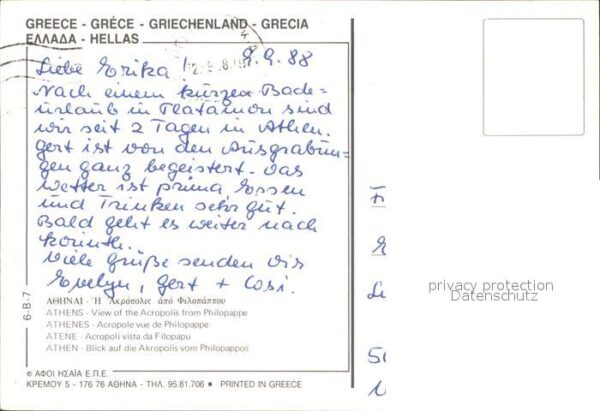 GREECE - GRÉCE - GRIECHENLAND - GRECIA
ΕΛΛΑΔΑ - HELLAS
Liebe Erika! 9.9.88
Nach einem kurzen Bade=
urlaub in Platamon sind
wir seit 2 Tagen in Athen.
Gert ist von den Ausgrabun=
gen ganz begeistert. Das
Wetter ist prima Essen
und Trinken sehr gut.
Bald geht es weiter nach
Korinth.
Viele Grüße senden Dir
Evelyn, Gert + Cosi.
6-B-7
ΑΘΗΝΑΙ - Ἡ Ἀκρόπολις ἀπό Φιλοπάππου
ATHENS - View of the Acropolis from Philopappe
ATHENES - Acropole vue de Philopappe
ATENE - Acropoli vista da Filopapu
ATHEN - Blick auf die Akropolis vom Philopappos
© ΑΦΟΙ ΗΣΑΪΑ Ε.Π.Ε.
ΚΡΕΜΟΥ 5 - 176 76 ΑΘΗΝΑ - ΤΗΛ. 95.81.706 • PRINTED IN GREECE
privacy protection
Datenschutz